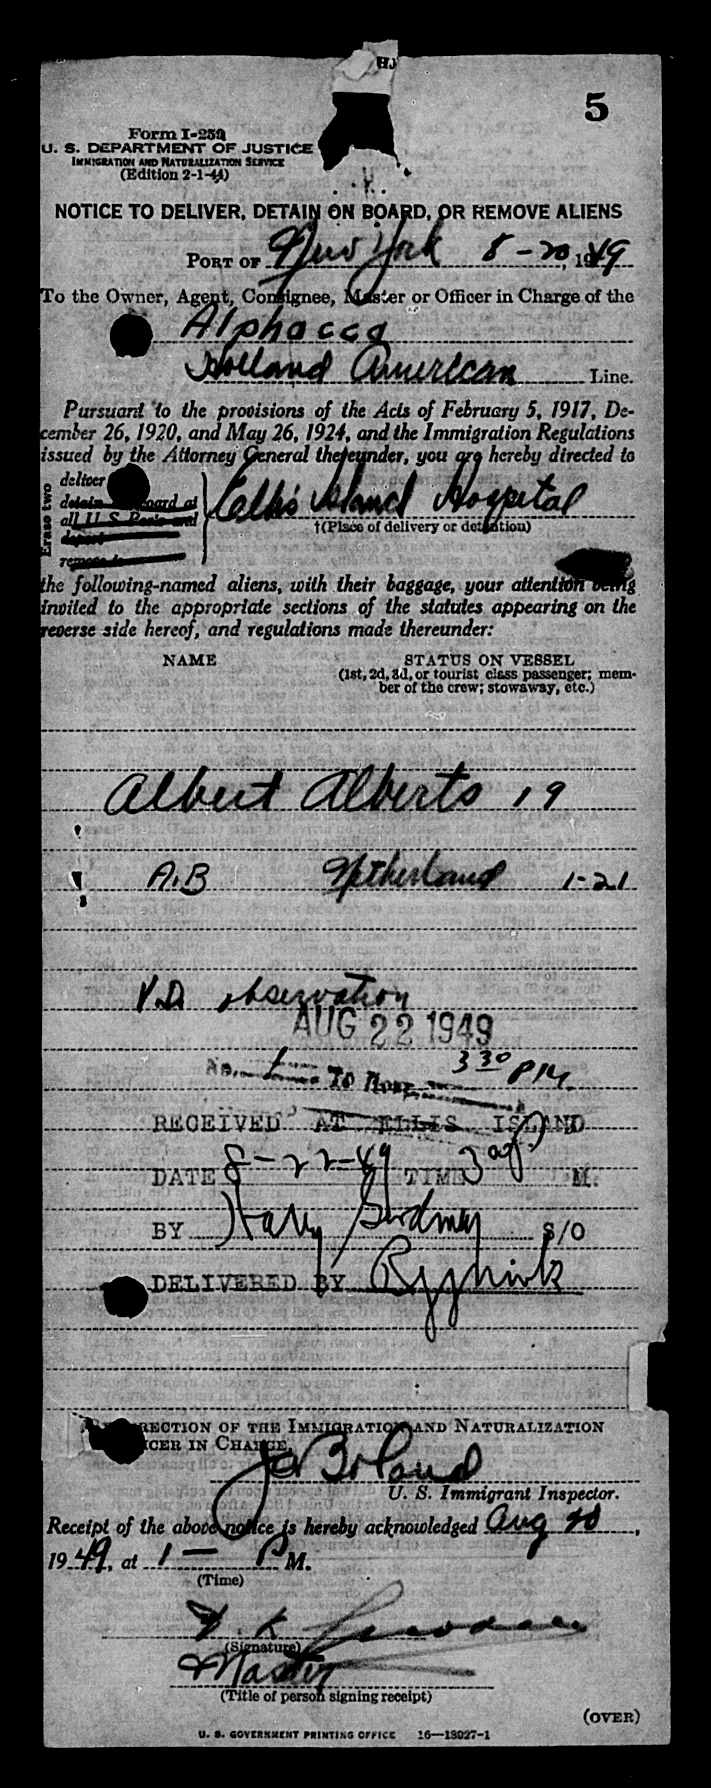 5
Form I-259
U. S. DEPARTMENT OF JUSTICE
IMMIGRATION AND NATURALIZATION SERVICE
(Edition 2-1-44)
NOTICE TO DELIVER, DETAIN ON BOARD, OR REMOVE ALIENS
PORT OF New York 8-20, 1949
To the Owner, Agent, Consignee, Master or Officer in Charge of the
Alphacca
Holland American Line.
Pursuant to the provisions of the Acts of February 5, 1917, De-
cember 26, 1920, and May 26, 1924, and the Immigration Regulations
issued by the Attorney General thereunder, you are hereby directed to
Erase two
deliver
detain board at
all U S Ports and
Ellis Island Hospital
†(Place of delivery or detention)
the following-named aliens, with their baggage, your attention being
invited to the appropriate sections of the statutes appearing on the
reverse side hereof, and regulations made thereunder:
NAME STATUS ON VESSEL
(1st, 2d, 3d, or tourist class passenger; mem-
ber of the crew; stowaway, etc.)
Albert Alberts 19
A.B Netherland 1-21
V.D observation
AUG 22 1949
3 30 PM
RECEIVED AT ELLIS ISLAND
DATE 8-22-49 TIME 3 M.
BY Harry S/O
DELIVERED BY
DIRECTION OF THE IMMIGRATION AND NATURALIZATION
OFFICER IN CHARGE,
Boland
U. S. Immigrant Inspector.
Receipt of the above notice is hereby acknowledged Aug 20,
1949, at 1 — P M.
(Time)
(Signature)
Master
(Title of person signing receipt)
(OVER)
U. S. GOVERNMENT PRINTING OFFICE 16—13027-1